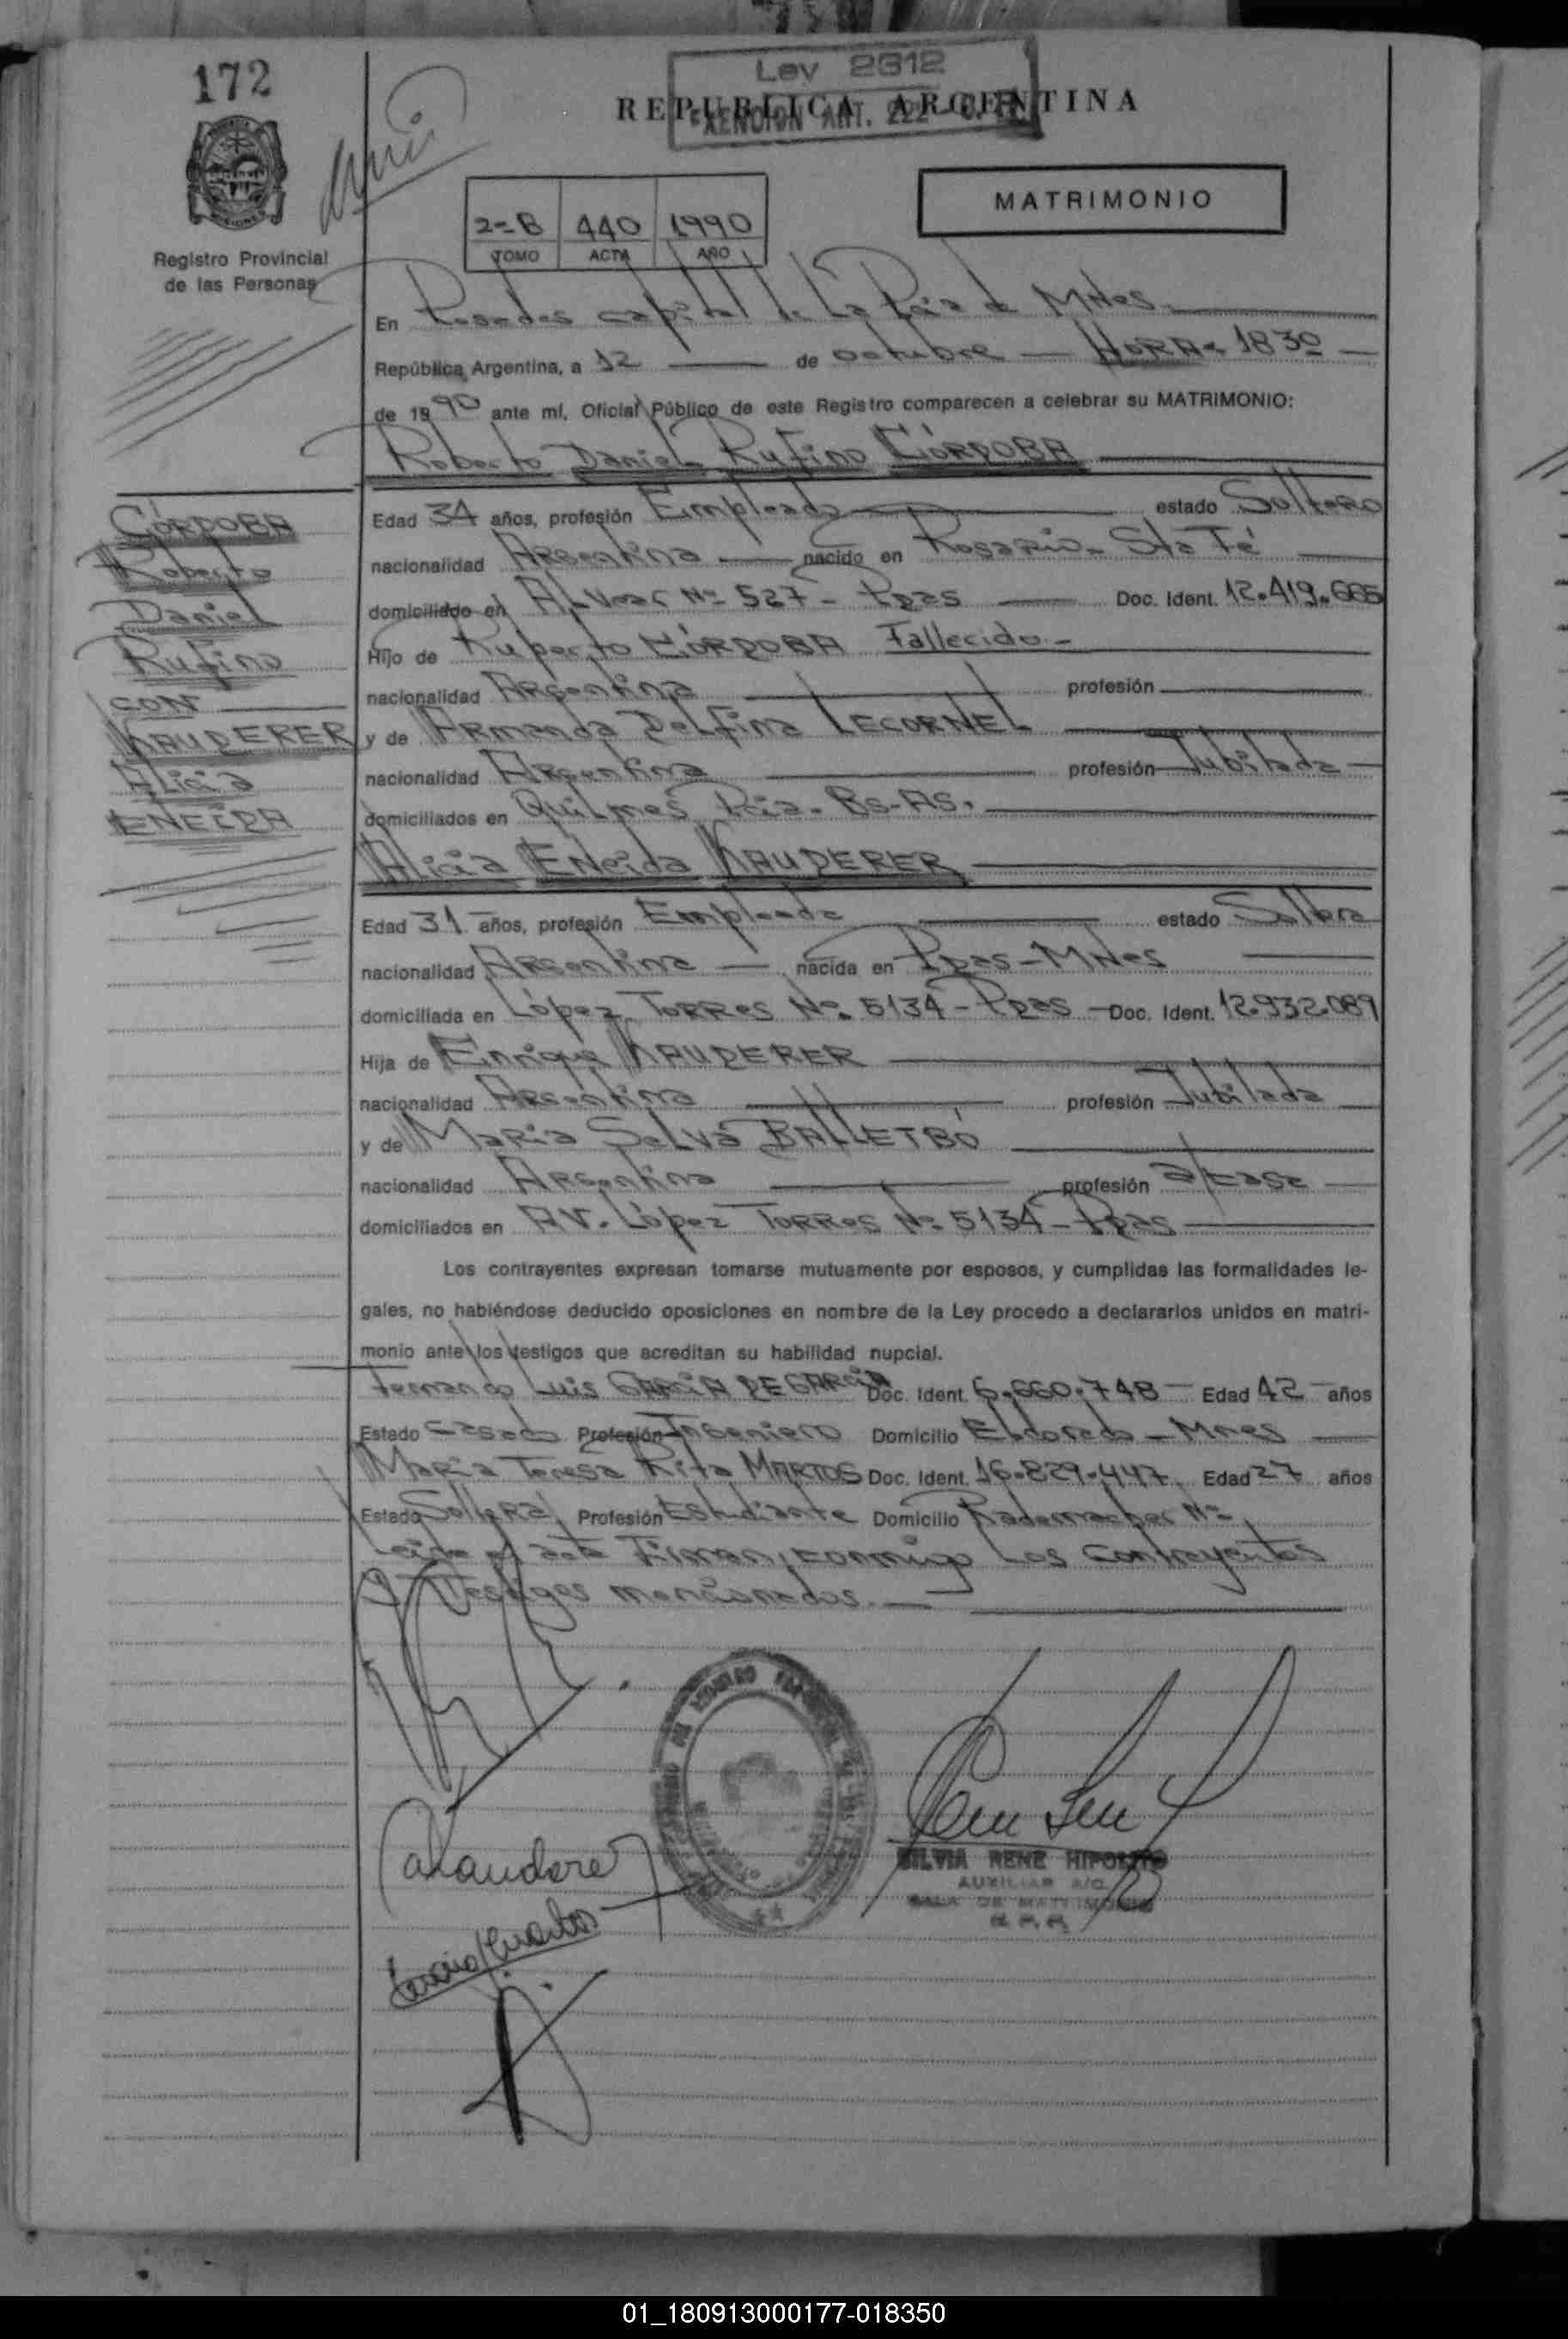 172
Ley 2312
REPUBLICA ARGENTINA
EXENCION ART. 222
MATRIMONIO
2=B 440 1990
TOMO ACTA AÑO
Registro Provincial
de las Personas
En Posadas capital de La Pcia de MNes.
República Argentina, a 12 de octubre HORA= 1830
de 1990 ante mí, Oficial Público de este Registro comparecen a celebrar su MATRIMONIO:
Roberto Daniel Rufino CÓRDOBA
CÓRDOBA
Roberto
Daniel
Rufino
CON
KAUDERER
Alicia
ENEIDA
Edad 34 años, profesión Empleado estado Soltero
nacionalidad Argentina nacido en Rosario- Sta Fé
domiciliado en Alvear Nº 527- Pdas Doc. Ident. 12.419.665
Hijo de Ruperto CÓRDOBA Fallecido-
nacionalidad Argentina profesión
y de Armanda Delfina LECORNEL
nacionalidad Argentina profesión Jubilada
domiciliados en Quilmes Pcia- Bs-As.
Alicia Eneida KAUDERER
Edad 31 años, profesión Empleada estado Soltera
nacionalidad Argentina nacida en Pdas-MNes
domiciliada en López Torres Nº 5134- Pdas Doc. Ident. 12.932.089
Hija de Enrique KAUDERER
nacionalidad Argentina profesión Jubilada
y de Maria Selva BALLETBÓ
nacionalidad Argentina profesión
domiciliados en AV. López Torres Nº 5134- Pdas
Los contrayentes expresan tomarse mutuamente por esposos, y cumplidas las formalidades le-
gales, no habiéndose deducido oposiciones en nombre de la Ley procedo a declararlos unidos en matri-
monio ante los testigos que acreditan su habilidad nupcial.
Fernando Luis GARCIA DE GARCIA Doc. Ident. 6.660.748 Edad 42 años
Estado Casado Profesión Ingeniero Domicilio Eldorado - Mnes
Maria Teresa Rita MARTOS Doc. Ident. 16.829.447 Edad 27 años
Estado Soltera Profesión Estudiante Domicilio Rademacher Nº
Leida el acta Firman, conmigo Los contrayentes
y Testigos mencionados.
SILVIA RENE HIPOLITO
AUXILIAR A/C
SALA DE MATRIMONIO
R. P. P.
01_180913000177-018350